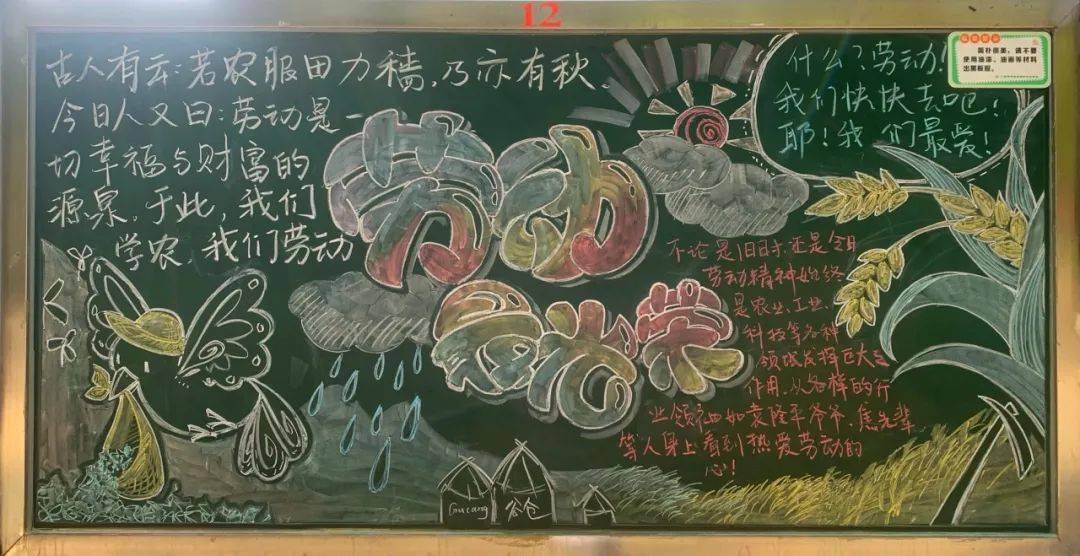 12
古人有云:若农服田力穑,乃亦有秋、
今日人又曰:劳动是一
切幸福与财富的
源泉.于此,我们
学农,我们劳动
劳动
最光荣
什么?劳动!
我们快快去吧!
耶!我们最爱!
粉笔很美,请不要
使用油漆、油画等材料
出黑板报。
不论是旧时、还是今日
劳动精神始终
是农业、工业、
科技等各种
领域发挥巨大
作用.从各样的行
业领袖如袁隆平爷爷、焦先辈
等人身上看到热爱劳动的
心!
Gu cang
谷仓